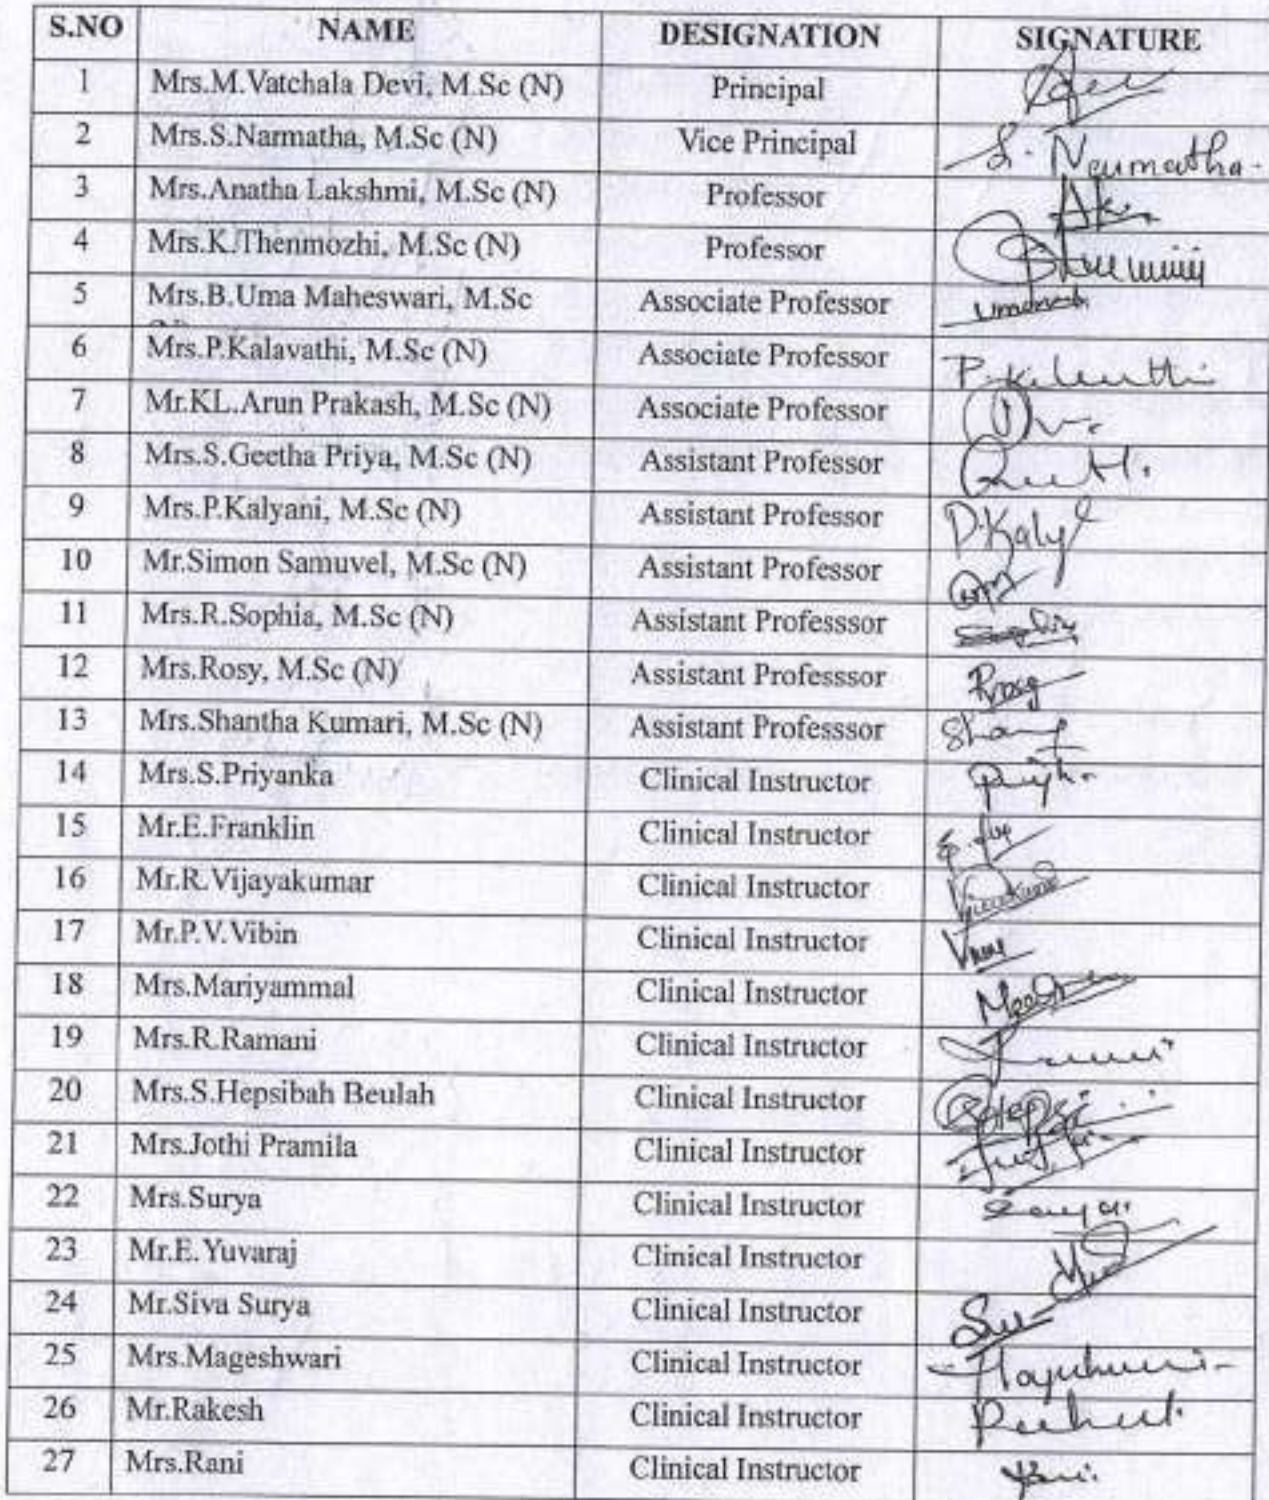 S.NO NAME DESIGNATION SIGNATURE
1 Mrs.M.Vatchala Devi, M.Sc (N) Principal
2 Mrs.S.Narmatha, M.Sc (N) Vice Principal S. Narmatha
3 Mrs.Anatha Lakshmi, M.Sc (N) Professor
4 Mrs.K.Thenmozhi, M.Sc (N) Professor
5 Mrs.B.Uma Maheswari, M.Sc Associate Professor
6 Mrs.P.Kalavathi, M.Sc (N) Associate Professor
7 Mr.KL.Arun Prakash, M.Sc (N) Associate Professor
8 Mrs.S.Geetha Priya, M.Sc (N) Assistant Professor
9 Mrs.P.Kalyani, M.Sc (N) Assistant Professor
10 Mr.Simon Samuvel, M.Sc (N) Assistant Professor
11 Mrs.R.Sophia, M.Sc (N) Assistant Professsor
12 Mrs.Rosy, M.Sc (N) Assistant Professsor
13 Mrs.Shantha Kumari, M.Sc (N) Assistant Professsor
14 Mrs.S.Priyanka Clinical Instructor
15 Mr.E.Franklin Clinical Instructor
16 Mr.R.Vijayakumar Clinical Instructor
17 Mr.P.V.Vibin Clinical Instructor
18 Mrs.Mariyammal Clinical Instructor
19 Mrs.R.Ramani Clinical Instructor
20 Mrs.S.Hepsibah Beulah Clinical Instructor
21 Mrs.Jothi Pramila Clinical Instructor
22 Mrs.Surya Clinical Instructor
23 Mr.E.Yuvaraj Clinical Instructor
24 Mr.Siva Surya Clinical Instructor
25 Mrs.Mageshwari Clinical Instructor
26 Mr.Rakesh Clinical Instructor
27 Mrs.Rani Clinical Instructor